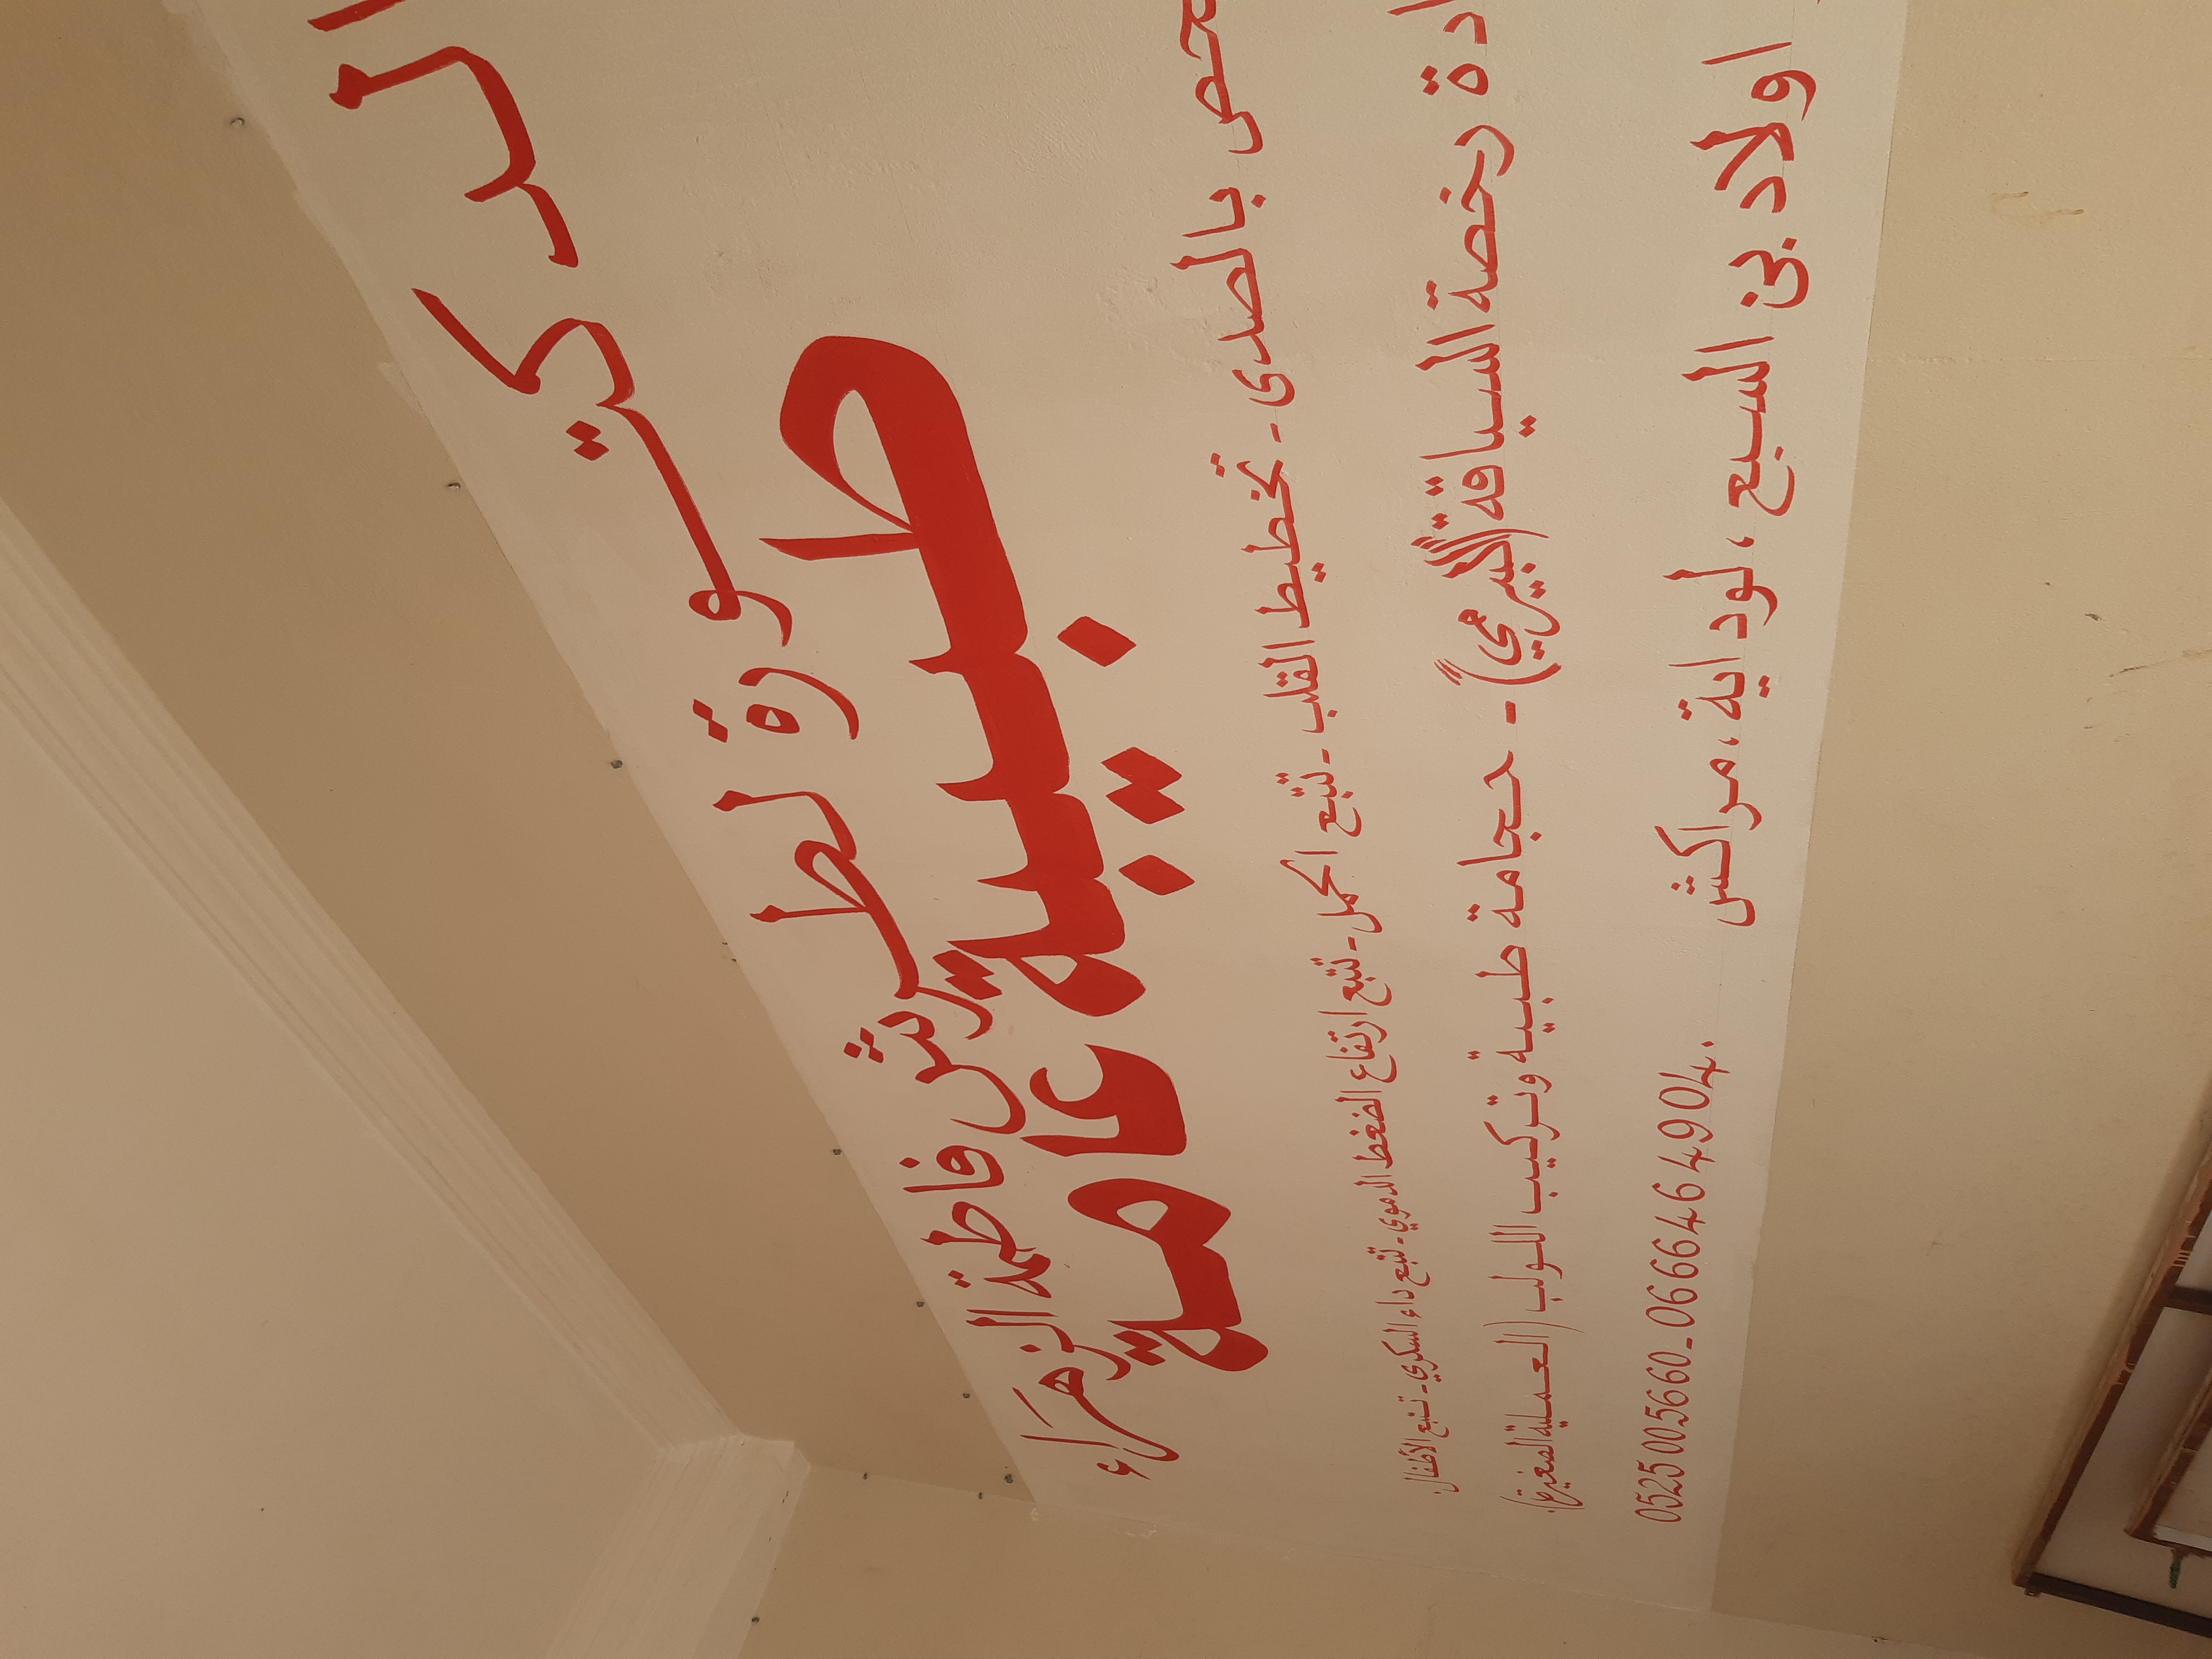 الدكتورة لطرش فاطمة الزهراء
طبيبة عامة
بالصدى - تخطيط القلب - تتبع الحمل - تتبع ارتفاع الضغط الدموي - تتبع داء السكري - تتبع الأطفال.
رخصة السياقة (الكبيرة) - حجامة طبية وتركيب اللولب (العملية الصغيرة).
اولاد بن السبع، لوداية، مراكش
0525005660 - 0666464904.